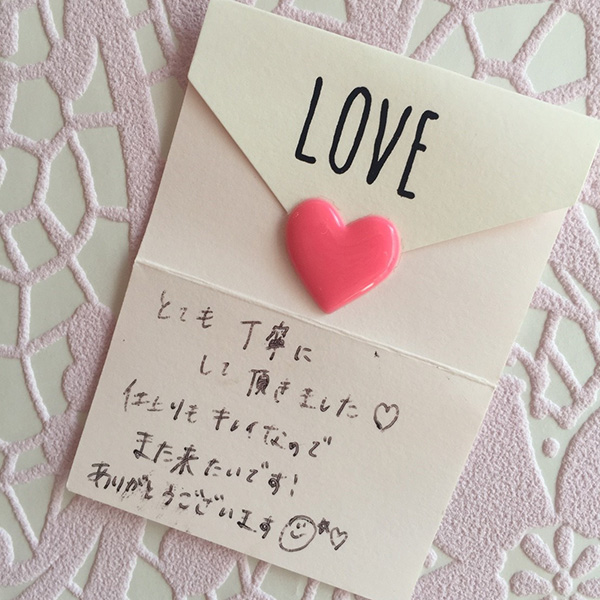 LOVE
とても 丁寧に
して 頂きました♡
仕上りも キレイなので
また来たいです!
ありがとうございます